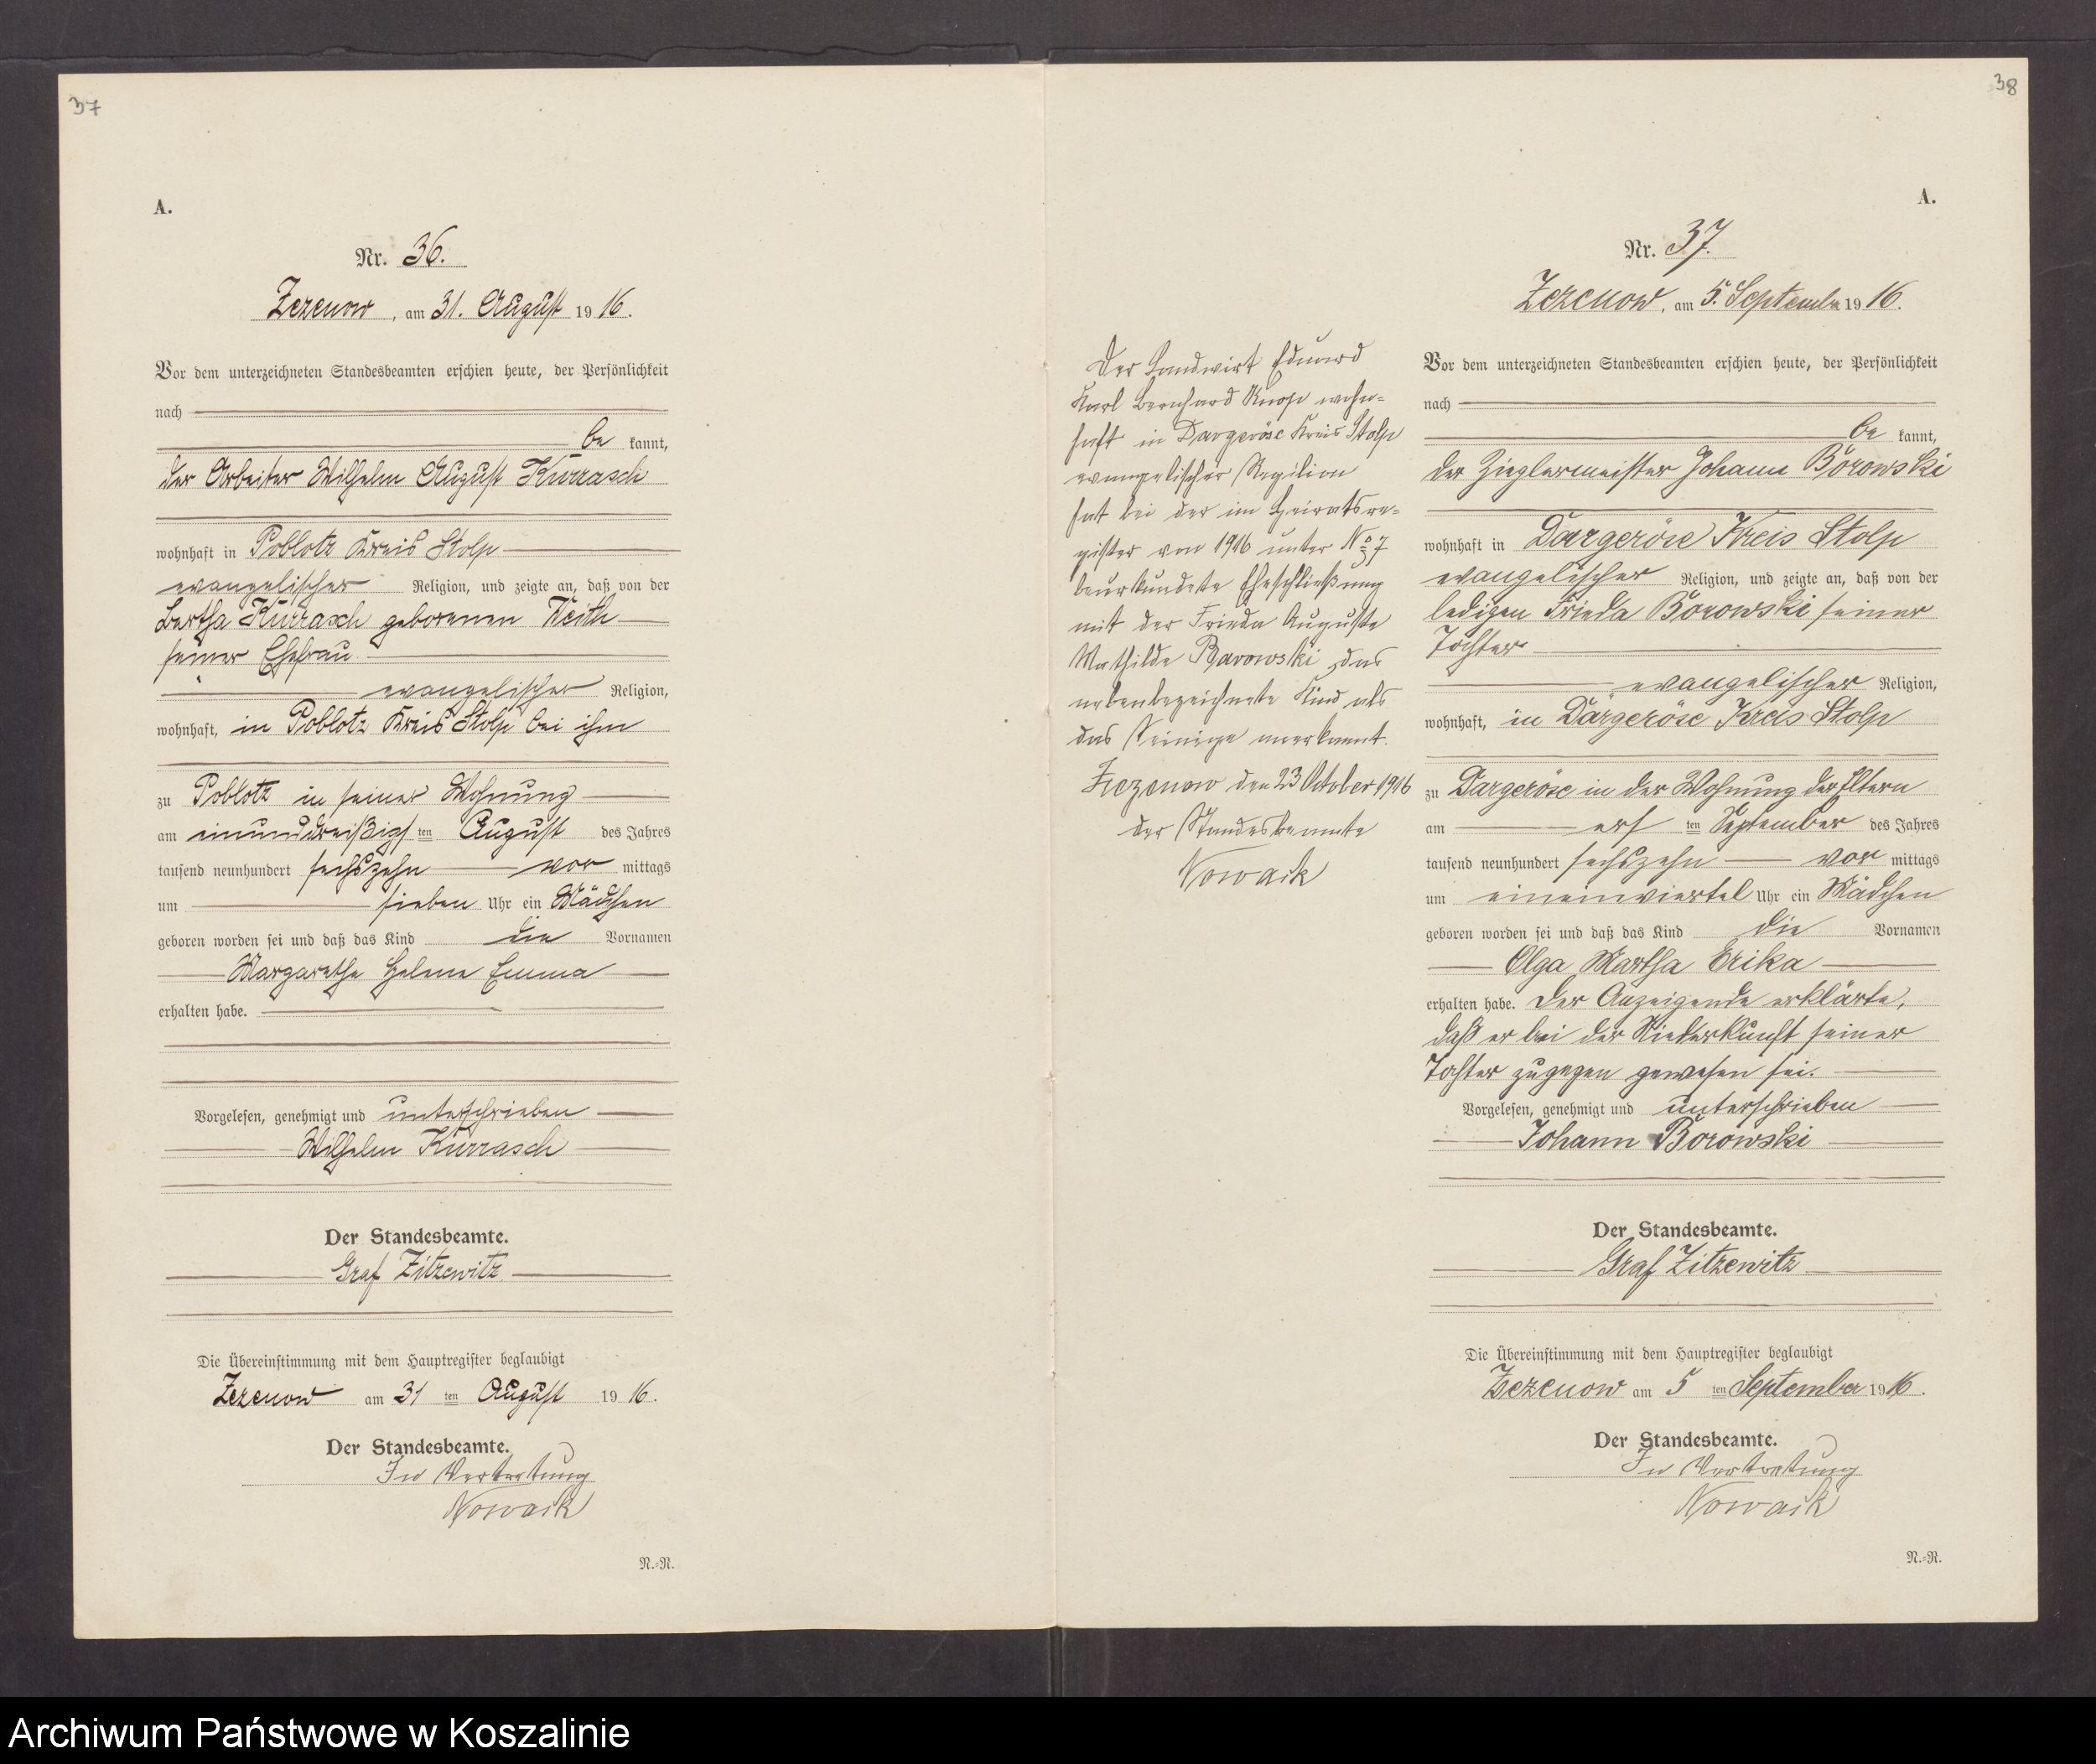 37
A.
Nr. 36.
Zezenow, am 31. August 1916.
Vor dem unterzeichneten Standesbeamten erschien heute, der Persönlichkeit
nach
be kannt,
der Arbeiter Wilhelm August Kurrasch
wohnhaft in Poblotz Kreis Stolp
evangelischer Religion, und zeigte an, daß von der
Bertha Kurrasch geborenen Keith
seiner Ehefrau
evangelischer Religion,
wohnhaft, in Poblotz Kreis Stolp bei ihm
zu Poblotz in seiner Wohnung
am einunddreißigsten August des Jahres
tausend neunhundert sechszehn vor mittags
um sieben Uhr ein Mädchen
geboren worden sei und daß das Kind die Vornamen
Margarethe Helene Emma
erhalten habe.
Vorgelesen, genehmigt und unterschrieben
Wilhelm Kurrasch
Der Standesbeamte.
Graf Zitzewitz
Die Übereinstimmung mit dem Hauptregister beglaubigt
Zezenow am 31 ten August 1916.
Der Standesbeamte.
In Vertretung
Nowack
N.=N.
38
A.
Nr. 37.
Zezenow, am 5. September 1916.
Der Landwirt Eduard
Karl Bernhard Knop wohn=
haft in Dargeröse Kreis Stolp
evangelischer Regilion
hat bei der im Heiratsre=
gister von 1916 unter No 7
beurkundete Eheschließung
mit der Frieda Auguste
Mathilde Barowski, das
nebenbezeichnete Kind als
das Seinige anerkannt.
Zezenow den 23 October 1916
der Standesbeamte
Nowack
Vor dem unterzeichneten Standesbeamten erschien heute, der Persönlichkeit
nach
be kannt,
der Zieglermeister Johann Borowski
wohnhaft in Dargeröse Kreis Stolp
evangelischer Religion, und zeigte an, daß von der
ledigen Frieda Borowski seiner
Tochter
evangelischer Religion,
wohnhaft, in Dargeröse Kreis Stolp
zu Dargeröse in der Wohnung der Eltern
am ersten September des Jahres
tausend neunhundert sechszehn vor mittags
um eineinviertel Uhr ein Mädchen
geboren worden sei und daß das Kind die Vornamen
Olga Martha Erika
erhalten habe. Der Anzeigende erklärte,
daß er bei der Niederkunft seiner
Tochter zugegen gewesen sei.
Vorgelesen, genehmigt und unterschrieben
Johann Borowski
Der Standesbeamte.
Graf Zitzewitz
Die Übereinstimmung mit dem Hauptregister beglaubigt
Zezenow am 5 ten September 1916.
Der Standesbeamte.
In Vertretung
Nowack
N.=N.
Archiwum Państwowe w Koszalinie